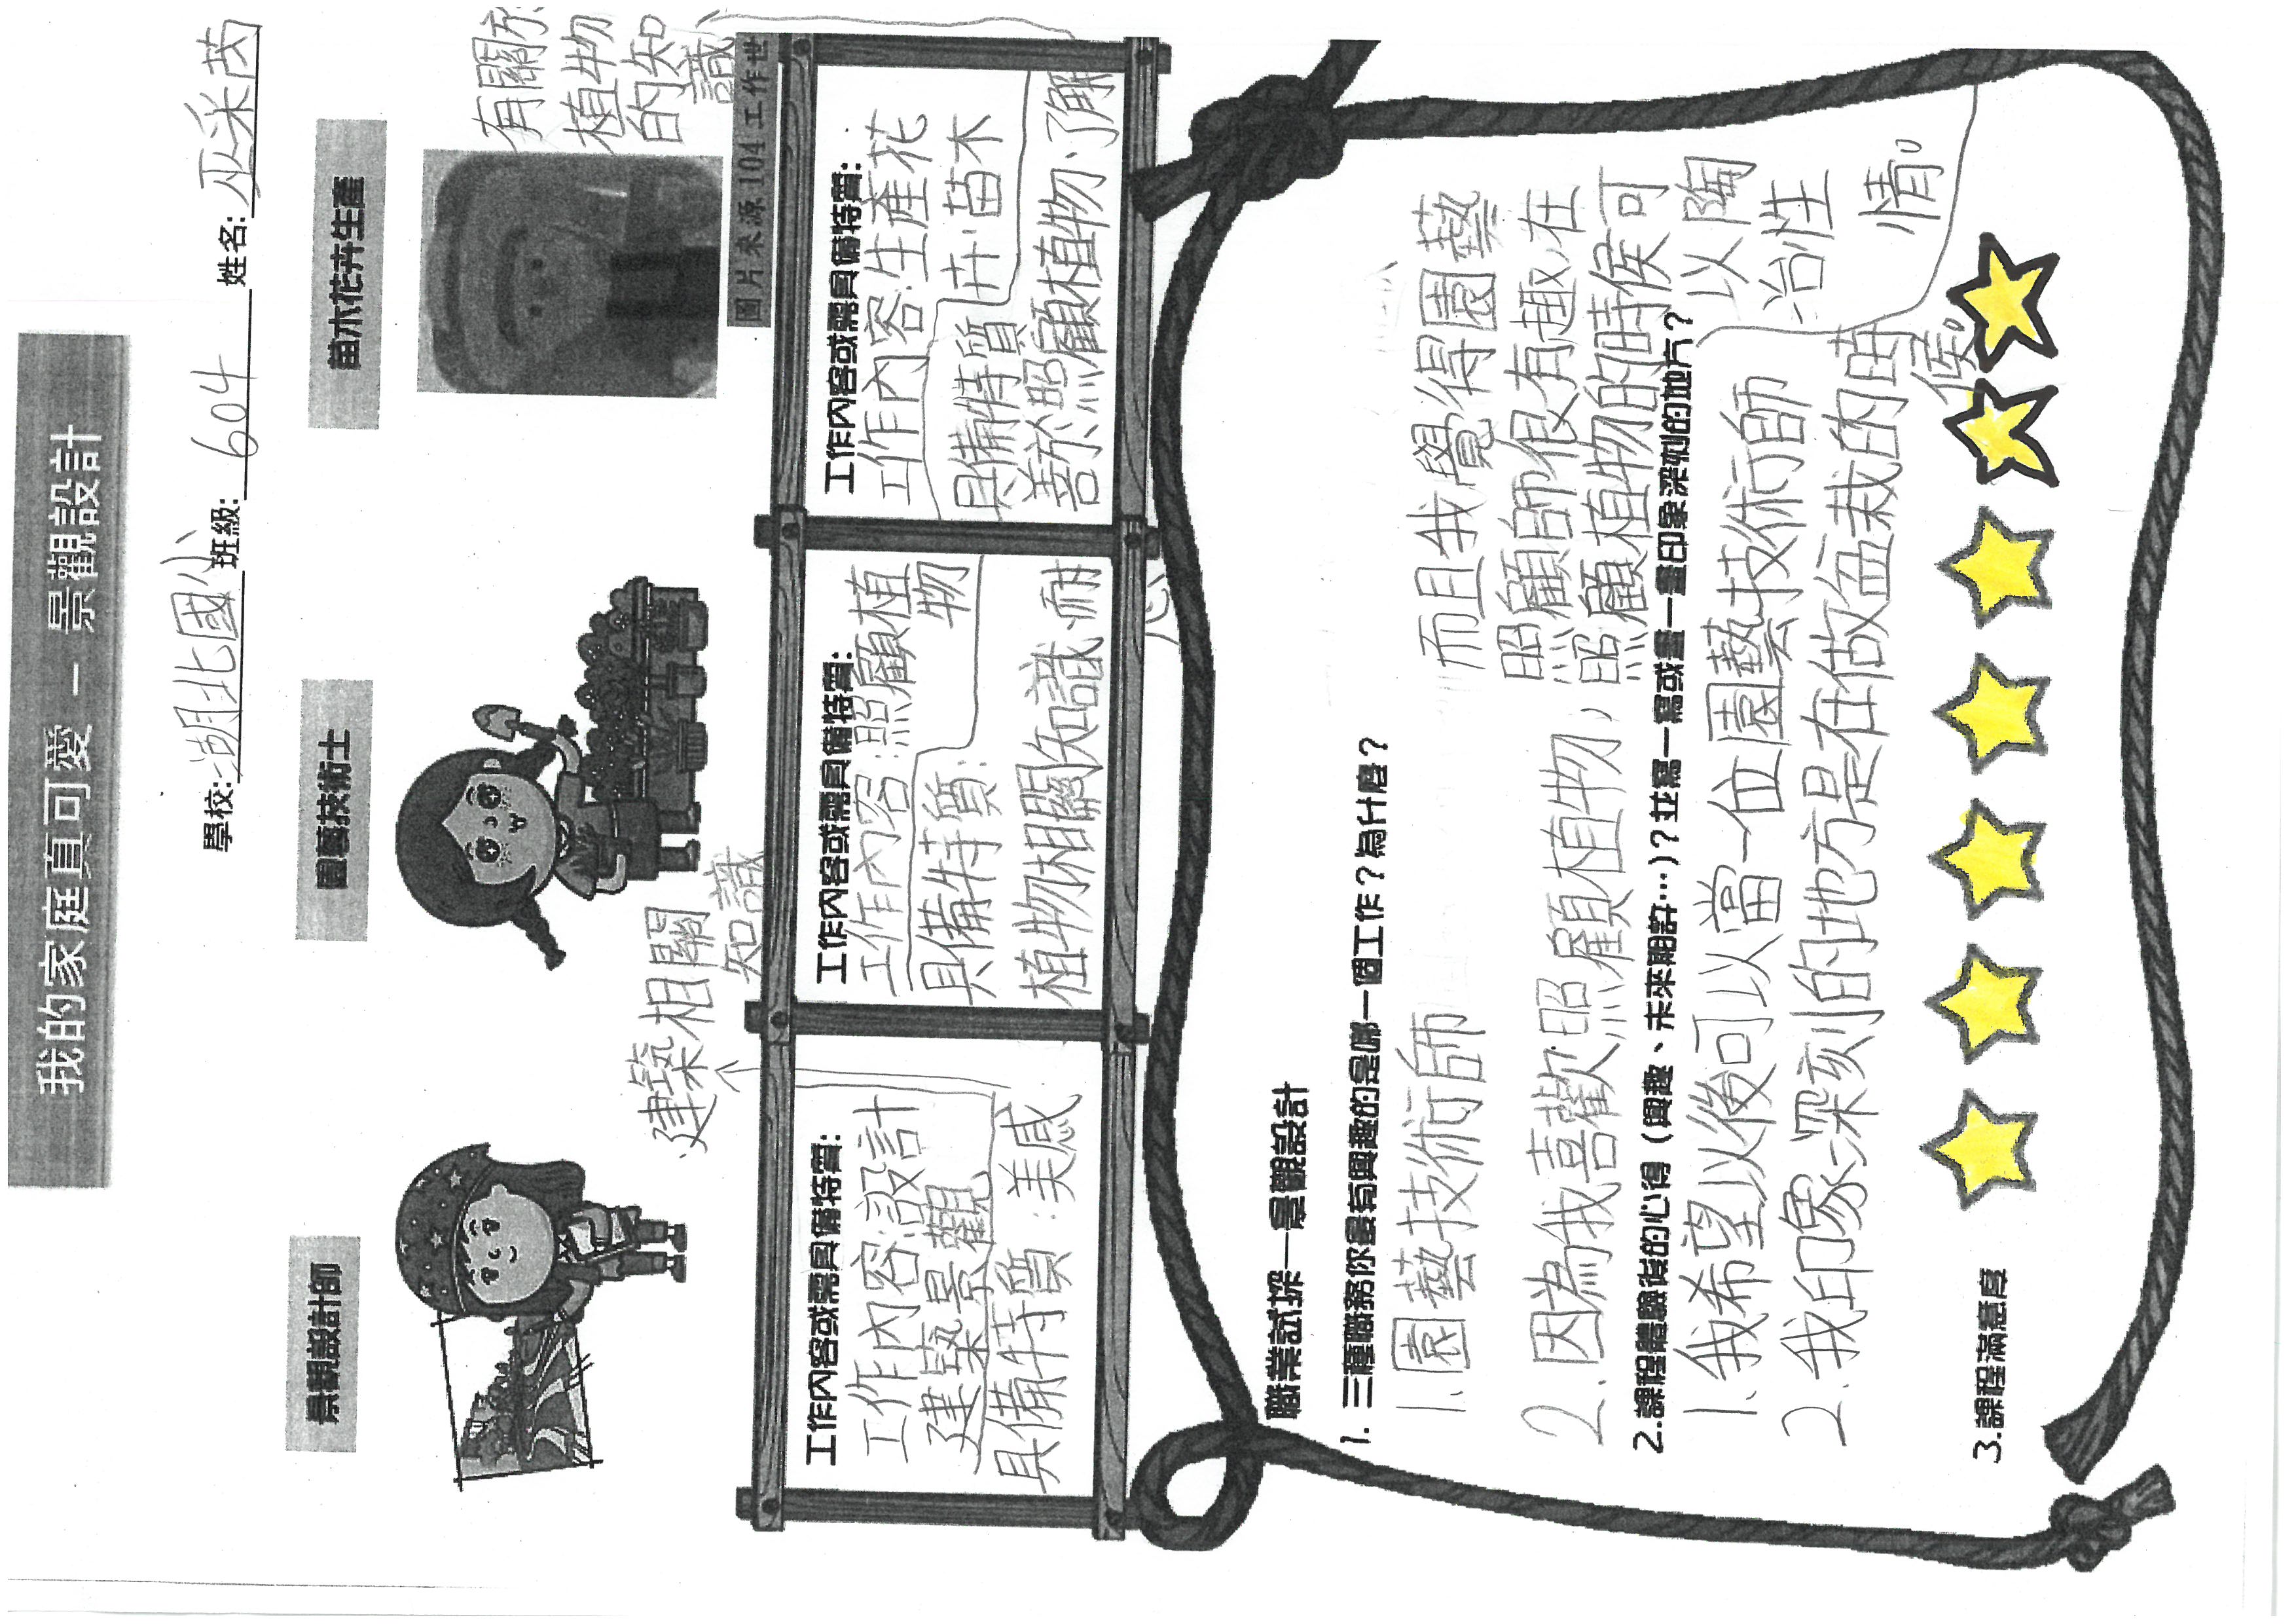 我的家庭真可愛 – 景觀設計
學校:湖北國小 班級:604 姓名:巫采茵
景觀設計師
園藝技術士
苗木花卉生產
圖片來源104工作世
工作內容或需具備特質:
工作內容:設計
建築景觀
具備特質:美感
建築相關
知識
工作內容或需具備特質:
工作內容:照顧植
物
具備特質:
植物相關知識、耐
心
工作內容或需具備特質:
工作內容:生產花
卉、苗木
具備特質
善於照顧植物、了解
有關於
植物
的知
識
職業試探—景觀設計
1. 三種職務你最有興趣的是哪一個工作?為什麼?
1.園藝技術師
2.因為我喜歡照顧植物,
而且我覺得園藝
照顧師很有趣,在
照顧植物的時侯可
以陶
冶性
情。
2.課程體驗後的心得(興趣、未來期許…)?並寫一寫或畫一畫印象深刻的地方?
1.我希望以後可以當一位園藝技術師
2.我印象深刻的地方是在做盆栽的時
侯。
3.課程滿意度